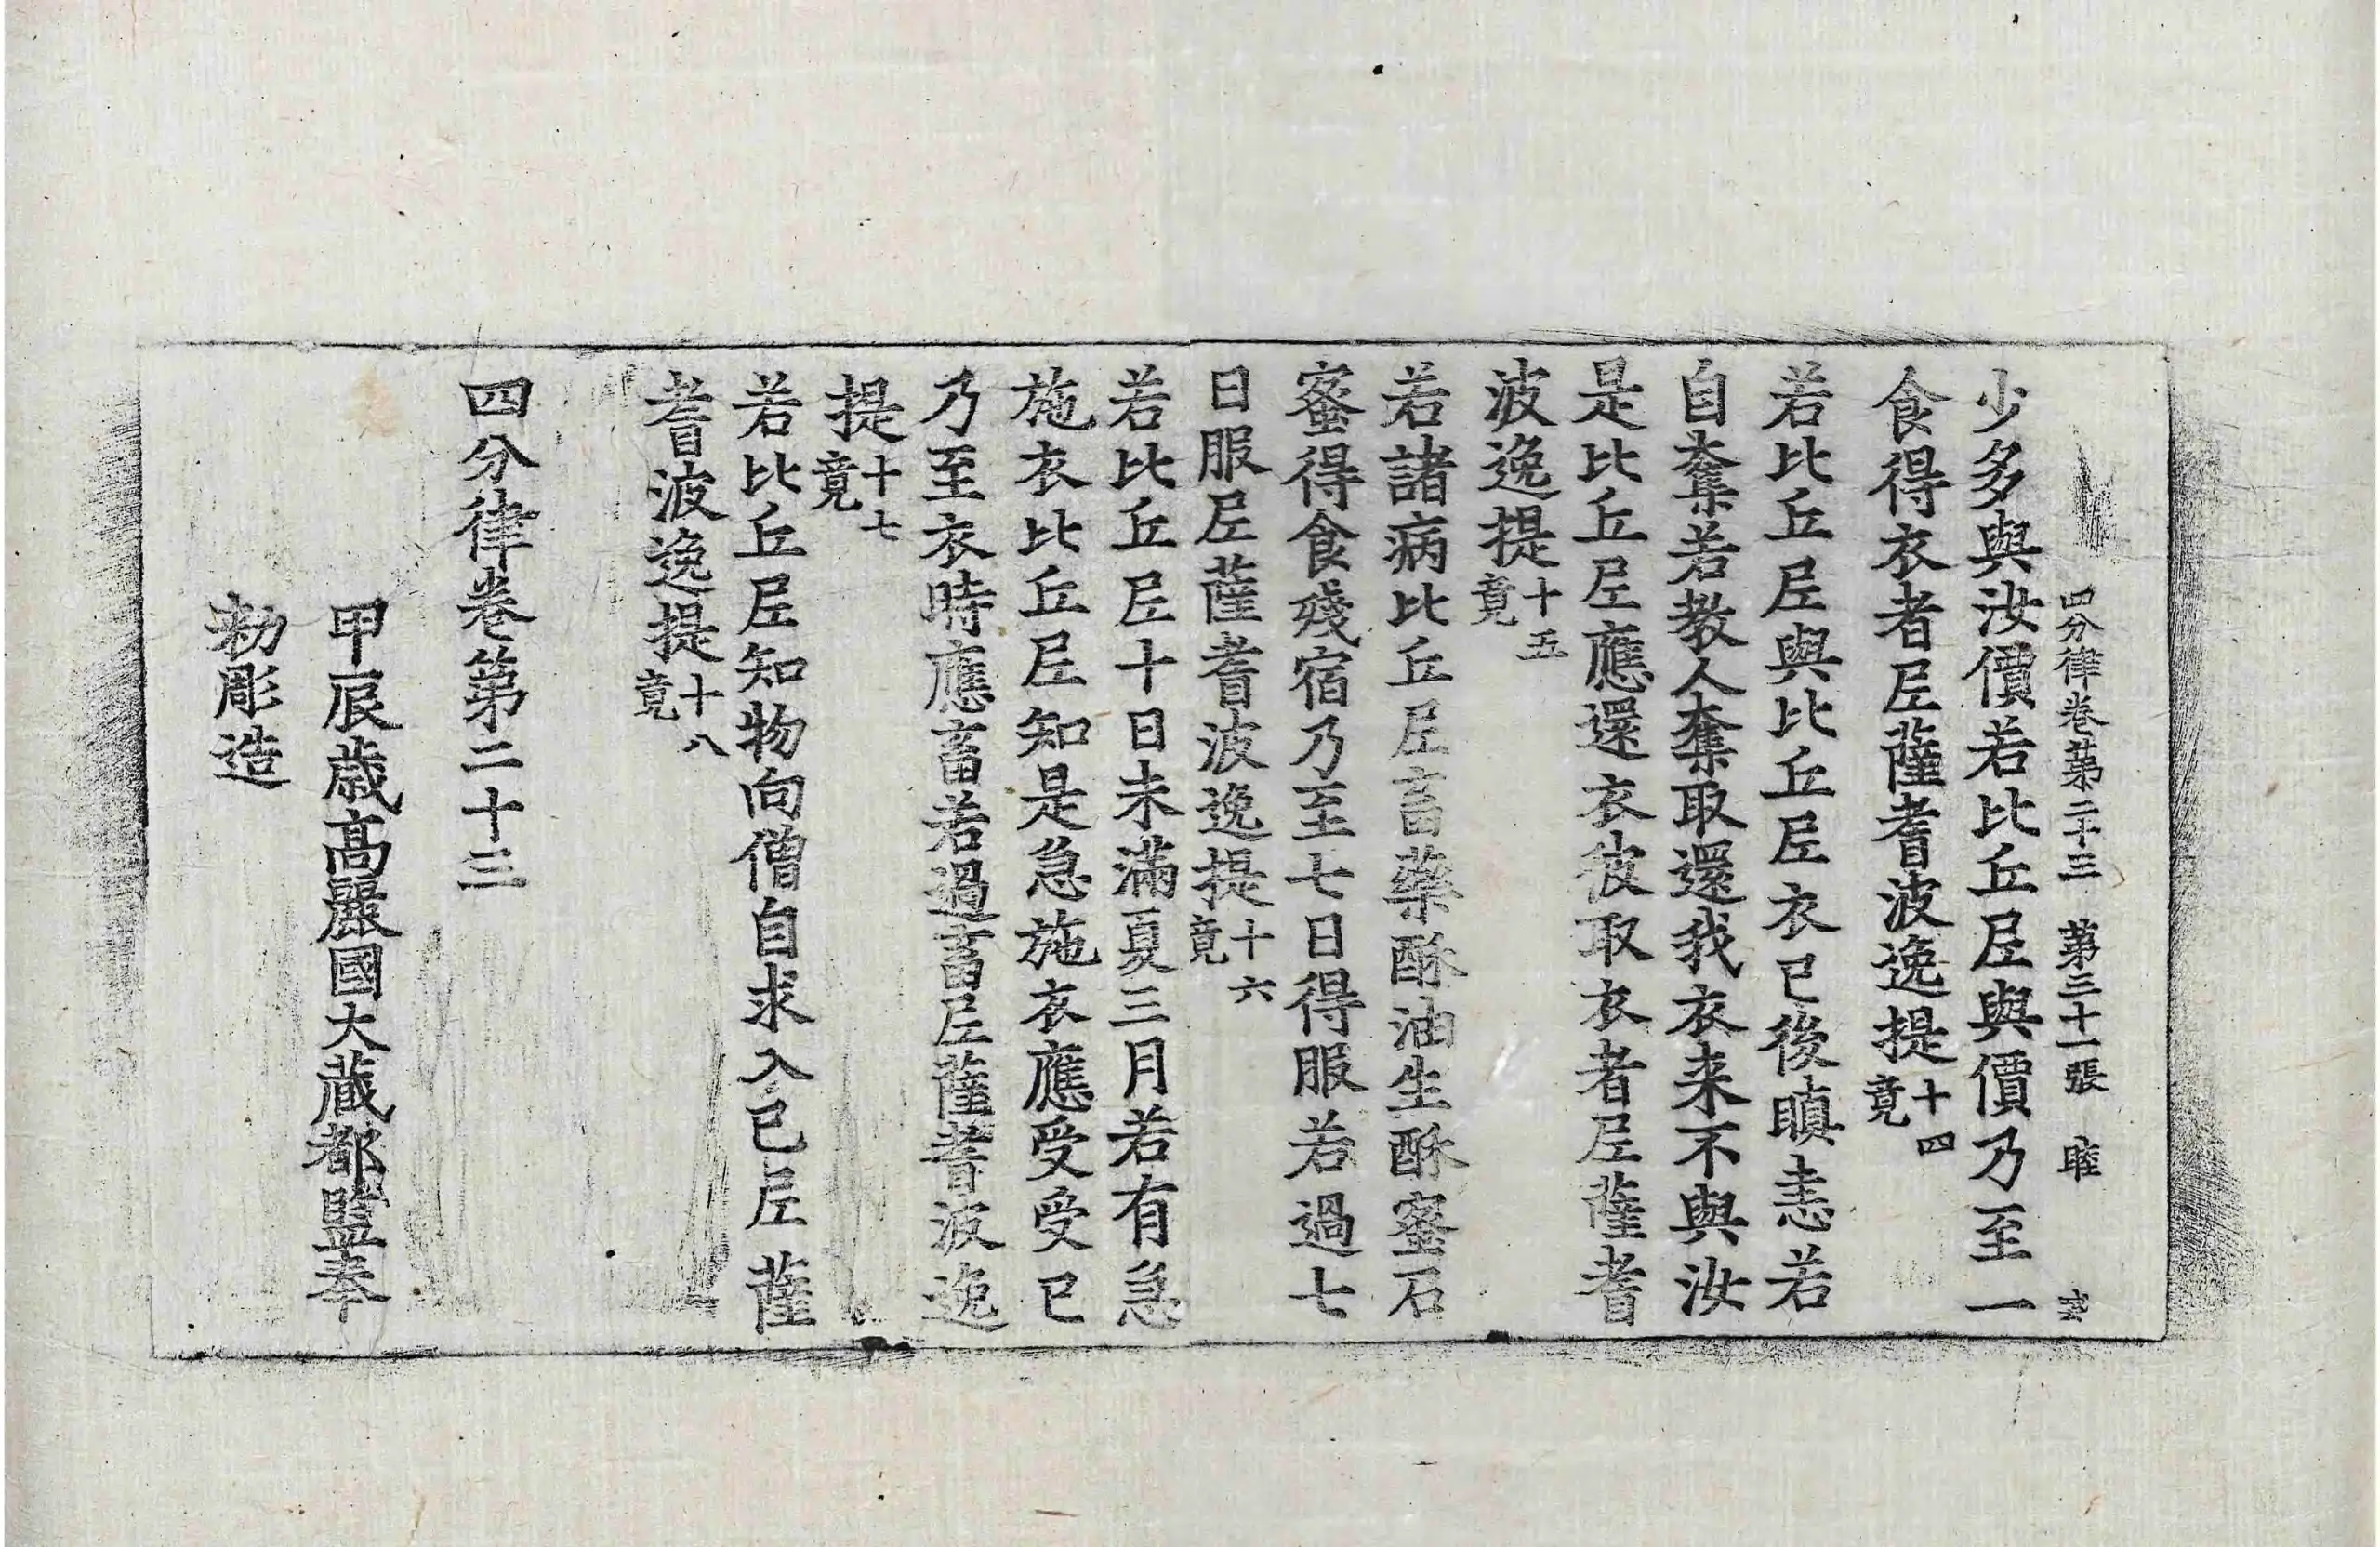 四分律卷苐二十三 苐三十一張 睦
少多與汝價若比丘尼與價乃至一
食得衣者尼薩耆波逸提十四竟
若比丘尼與比丘尼衣已後瞋恚若
自奪若教人奪取還我衣来不與汝
是比丘尼應還衣彼取衣者尼薩耆
波逸提十五竟
若諸病比丘尼畜藥酥油生酥蜜石
蜜得食殘宿乃至七日得服若過七
日服尼薩耆波逸提十六竟
若比丘尼十日未滿夏三月若有急
施衣比丘尼知是急施衣應受受已
乃至衣時應畜若過畜尼薩耆波逸
提十七竟
若比丘尼知物向僧自求入已尼薩
耆波逸提十八竟
四分律卷第二十三
甲辰歲高麗國大藏都監奉
勑彫造